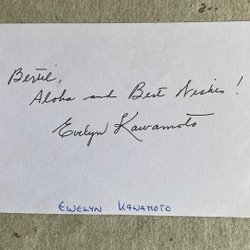 Bertil,
Aloha and Best Wishes!
Evelyn Kawamoto
EWELYN KAWAMOTO